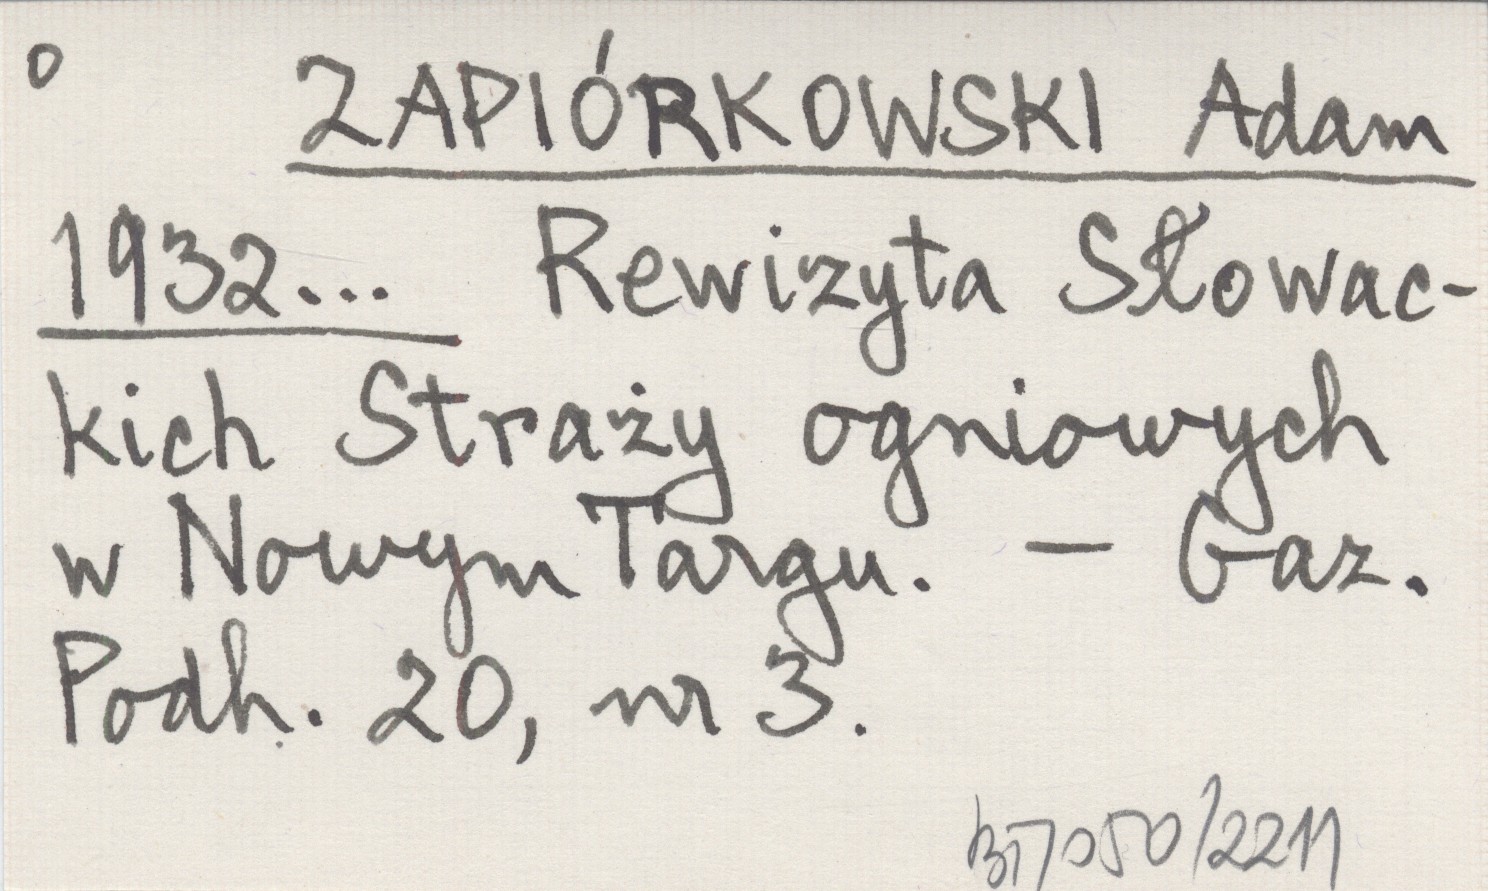 o ZAPIÓRKOWSKI Adam
1932... Rewizyta Słowac-
kich Straży ogniowych
w Nowym Targu. — Gaz.
Podh. 20, nr 3.
050/2211